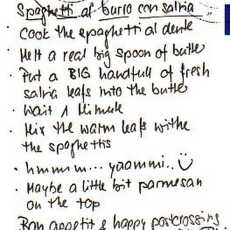 Spaghetti al burro con salvia
· Cook the spaghetti al dente
· Melt a real big spoon of butter
· Put a BIG handfull of fresh
salvia leafs into the butter
· Wait 1 Minute
· Mix the warm leafs withe
the spaghettis
· hmmm... yaommi..
· Maybe a little bit parmesan
on the top
Bon appetit & happy postcrossing